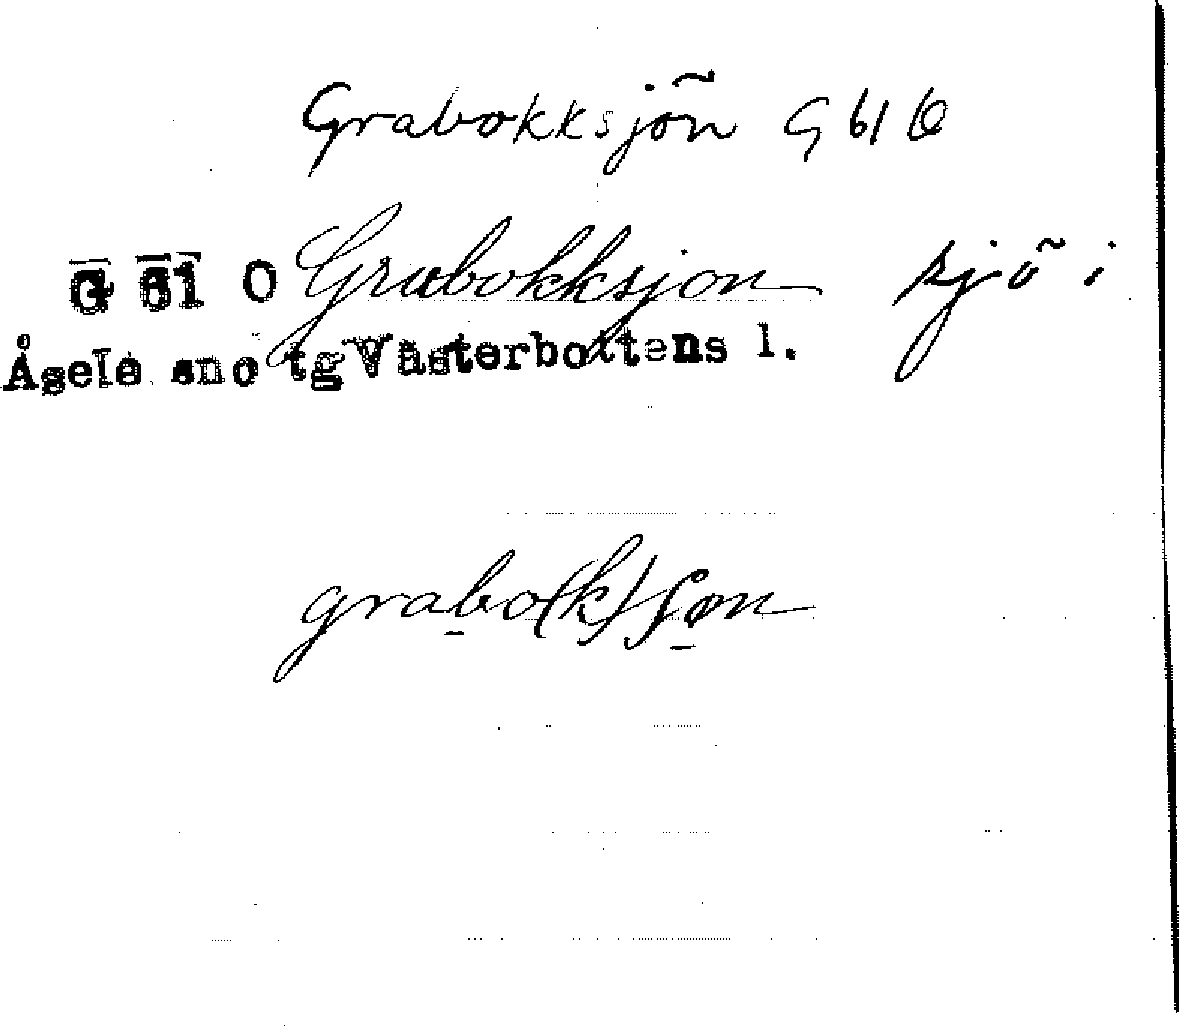 Grabokksjön G 61 O
G 61 O Grabokksjon sjö i
Åsele sno tg Västerbottens l.
grabo(k)ſøn